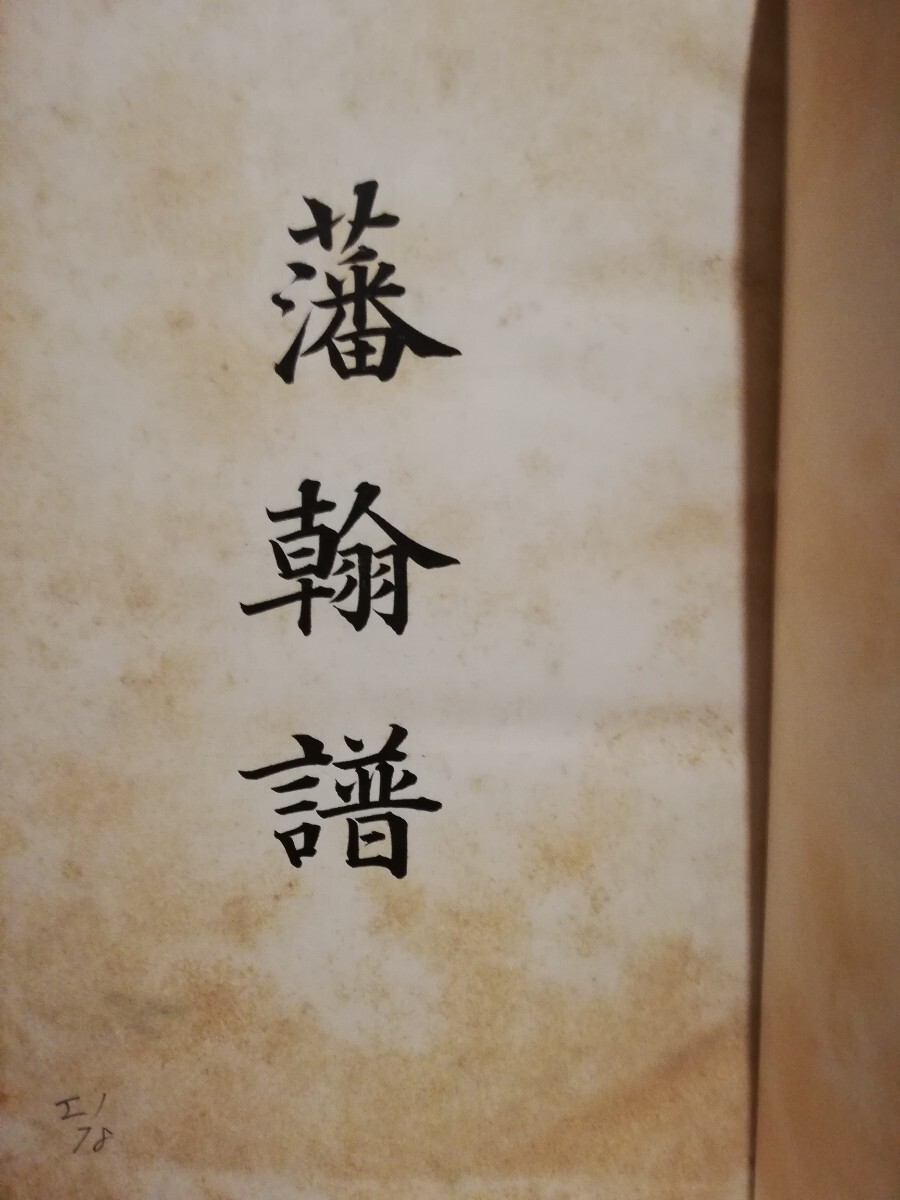 藩翰譜
エ1
78